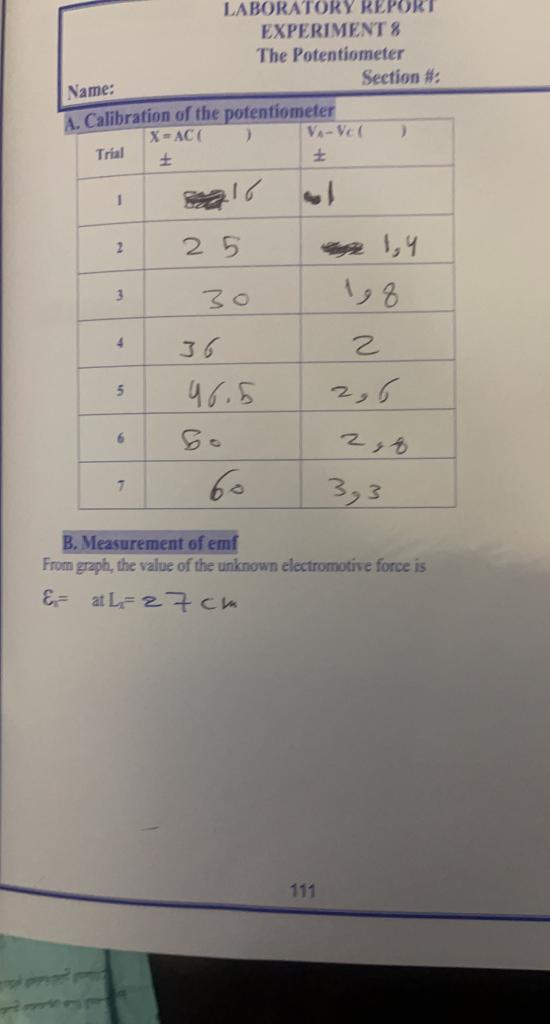 LABORATORY REPORT
EXPERIMENT 8
The Potentiometer
Section #:
Name:
A. Calibration of the potentiometer
Trial X = AC ( ) ± VA – VC ( ) ±
1 16 1
2 25 1,4
3 30 1,8
4 36 2
5 46.5 2,6
6 50 2,8
7 60 3,3
B. Measurement of emf
From graph, the value of the unknown electromotive force is
Ɛx= at Lx= 27 cm
111